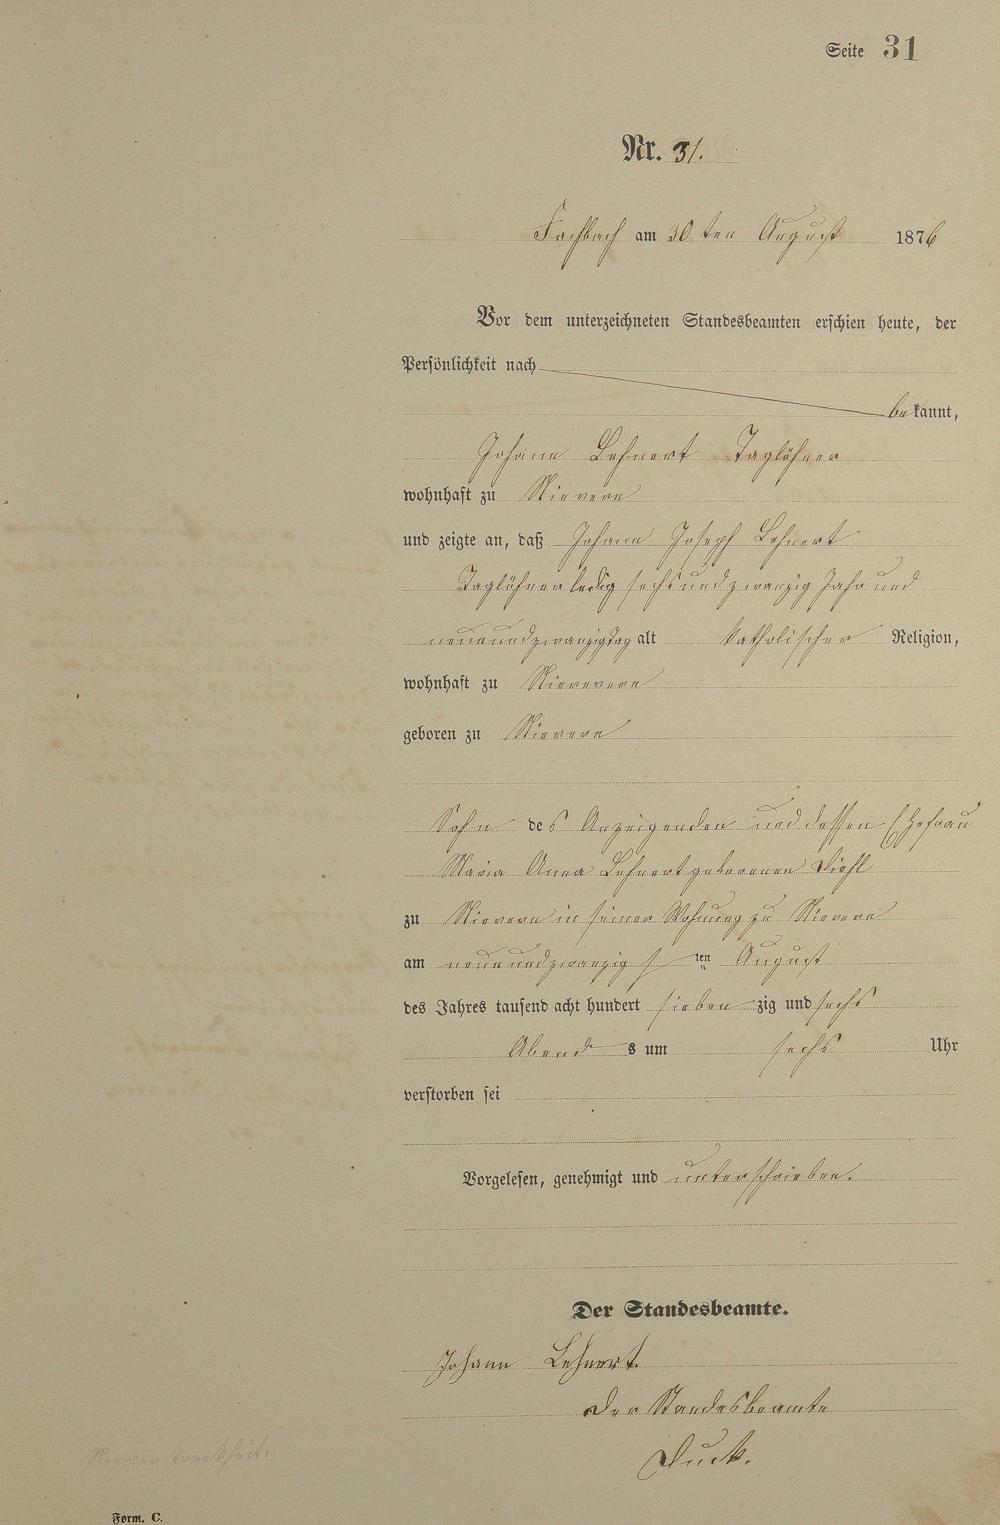 Seite 31
Nr. 31.
Fachbach am 30 ten August 1876
Vor dem unterzeichneten Standesbeamten erschien heute, der
Persönlichkeit nach
bekannt,
Johann Lehnert Taglöhner
wohnhaft zu Nievern
und zeigte an, daß Johann Joseph Lehnert
Taglöhner ledig sechsundzwanzig Jahr und
neunundzwanzig Tag alt katholischer Religion,
wohnhaft zu Nieverern
geboren zu Nievern
Sohn des Anzeigenden und dessen Ehefrau
Maria Anna Lehnert geborenen Diehl
zu Nievern in seiner Wohnung zu Nievern
am neunundzwanzigs ten August
des Jahres tausend acht hundert siebenzig und sechs
Abends um sechs Uhr
verstorben sei
Vorgelesen, genehmigt und unterschrieben.
Der Standesbeamte.
Johann Lehnert.
Der Standesbeamte
Duck.
Nierenkrankheit.
Form. C.